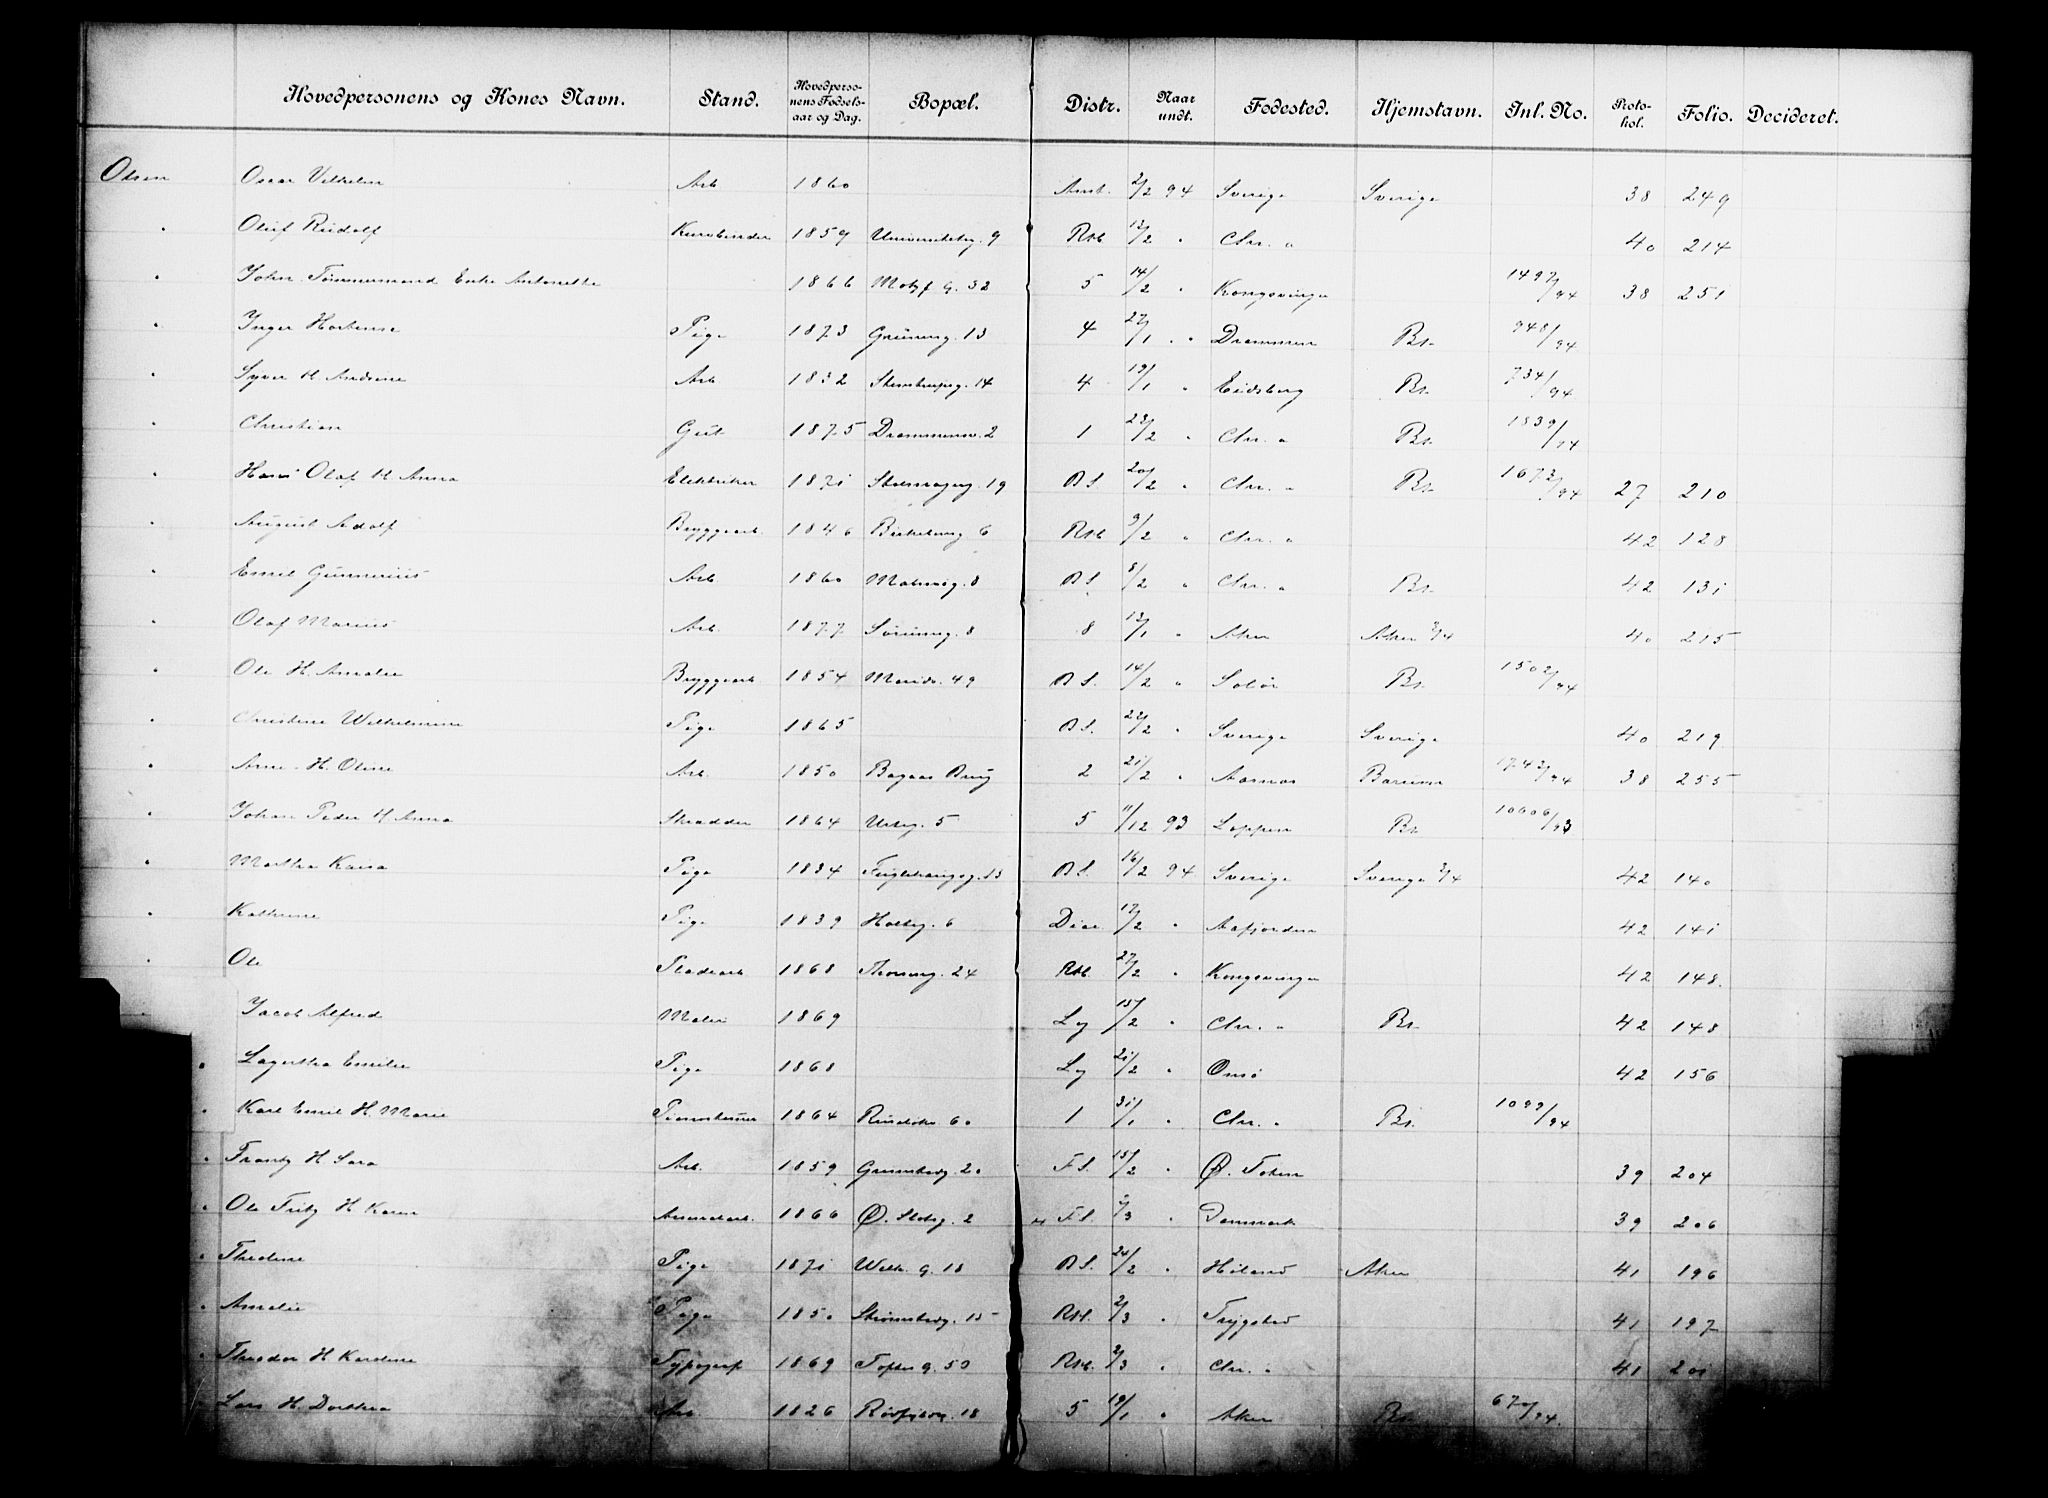 Hovedpersonens og Kones Navn. Stand. Hovedpersonens Fødselsaar og Dag. Bopæl. Distr. Naar undt. Fødested. Hjemstavn. Inl. No. Protokol. Folio. Decideret.
Olsen Oscar Vilhelm Arb 1860 Amb. 2/2 94 Sverige Sverige 38 249
" Oluf Rudolf Kurvbinder 1859 Universitetsg. 9 Rst 12/2 " Chr. a 40 214
" John Tømmermand Enke Antonette 1866 Motzf G. 32 5 14/2 " Kongsvinger 1497/94 38 251
" Inger Hortense Pige 1873 Grünerg. 13 4 27/1 " Drammen Br. 948/94
" Syver H. Andrine Arb 1832 Stenstrupg. 14 4 19/1 " Eidsberg Br. 734/94
" Christian Gut 1875 Drammensv. 2 1 23/2 " Chr. a Br. 1839/94
" Hans Olaf H Anna Elektriker 1871 19 B S. 20/2 " Chr. a Br. 1672/94 27 210
" August Adolf Bryggearb. 1846 Birkelung 6 Rst 9/2 " Chr. a 42 128
" Emil Gunnerius Arb. 1860 Malmøg. 8 B S. 8/2 " Chr. a Br. 42 131
" Olaf Marius Arb. 1877 Sørumg. 8 8 12/1 " Aker Aker 3/4 40 215
" Ole H. Amalie Bryggearb 1854 Marids. 49 B S. 14/2 " Solør Br. 1502/94
" Christine Wilhelmine Pige 1865 B S. 22/2 " Sverige Sverige 40 219
" Arne H. Oline Arb. 1850 Bagaas Brug 2 21/2 " Aasnes Bærum 1742/94 38 255
" Johan Peder H Anna Skrædder 1864 Urteg. 5 5 11/12 93 Loppen Br 10606/93
" Martha Kaisa Pige 1834 Fuglehaugsg. 13 B S. 16/2 94 Sverige Sverige 3/4 42 140
" Kathrine Pige 1839 Holteg. 6 Diac. 17/2 " Aafjorden 42 141
" Ole Pladearb 1868 Throndg. 24 Rst. 27/2 " Kongsvinger 42 148.
" Jacob Alfred Maler 1869 Lg 15/2 " Chr. " Br. 42 148
" Lagertha Emilie Pige 1868 Lg 21/2 " Onsø 42 156
" Karl Emil H. Marie 1864 Ruseløkv. 60 1 31/1 " Chr. " Br. 1099/94
" Frantz H Sara Arb. 1859 Grønnbeg. 20 F S. 15/2 " Ø. Toten 39 204
" Ole Fritz H Karen 1866 Ø. Slotsg. 2 F S. 2/3 " Danmark 39 206
" Thedine Pige 1871 Welh. G. 18 B S. 24/2 " Høland Aker 41 196
" Amalie Pige 1850 Strømsbrg. 15 Rst. 2/3 " Trygstad 41 197
" Theodor H Karoline Typograf 1869 Toftes G. 50 Rst. 2/3 " Chr. " 41 201
" Lars H. Dorthea Arb. 1826 18 5 19/1 " Aker Br. 670/94.